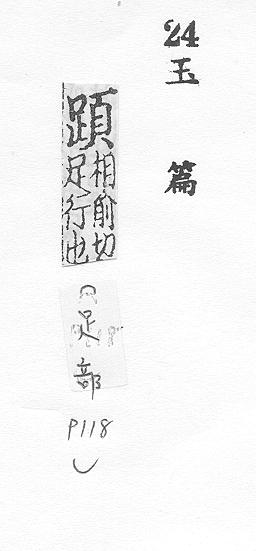 24
玉篇
相俞切
足行也
(足部
P118)